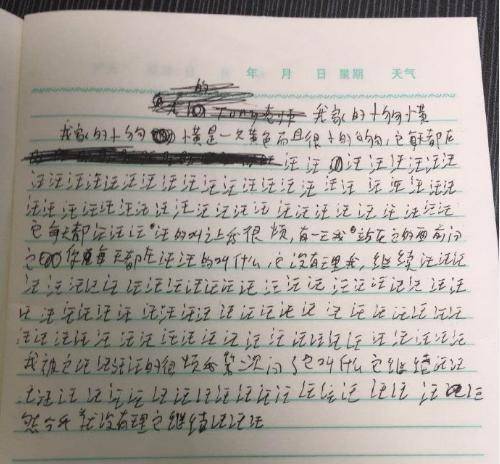 年 月 日 星期 天气
的
Tony老师 我家的小狗小黄
我家的小狗 小黄是一只黄色而且很小的狗狗,它每天都在
汪汪 汪汪汪汪汪汪
汪汪汪汪汪汪汪汪汪汪汪汪汪汪汪汪汪汪汪汪
汪汪汪汪汪汪汪汪汪汪汪汪汪汪汪汪汪汪汪汪
它每天都汪汪汪汪的叫让我很烦,有一天我站在它的面前问
它你每天都在汪汪的叫什么,它没有理我,继续汪汪汪
汪汪汪汪汪汪汪汪汪汪汪汪汪汪汪汪汪汪汪汪
汪汪汪汪汪汪汪汪汪汪汪汪汪汪汪汪汪汪汪汪
汪汪汪汪汪汪汪汪汪汪汪汪汪汪汪汪汪汪汪汪
我被它汪汪汪汪的很烦我第二次问了它叫什么它继续汪汪
汪汪汪汪汪汪汪汪汪汪汪汪汪汪汪汪汪汪汪
然今天我没有理它继续汪汪汪